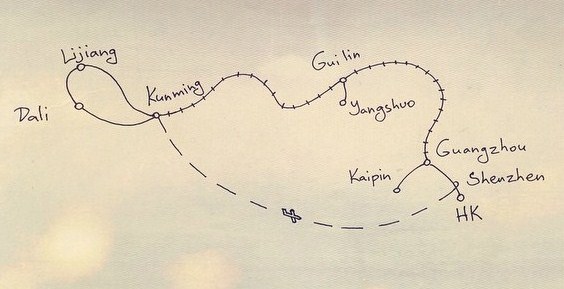 Lijiang
Dali
Kunming
Guilin
Yangshuo
Guangzhou
Kaipin
Shenzhen
HK